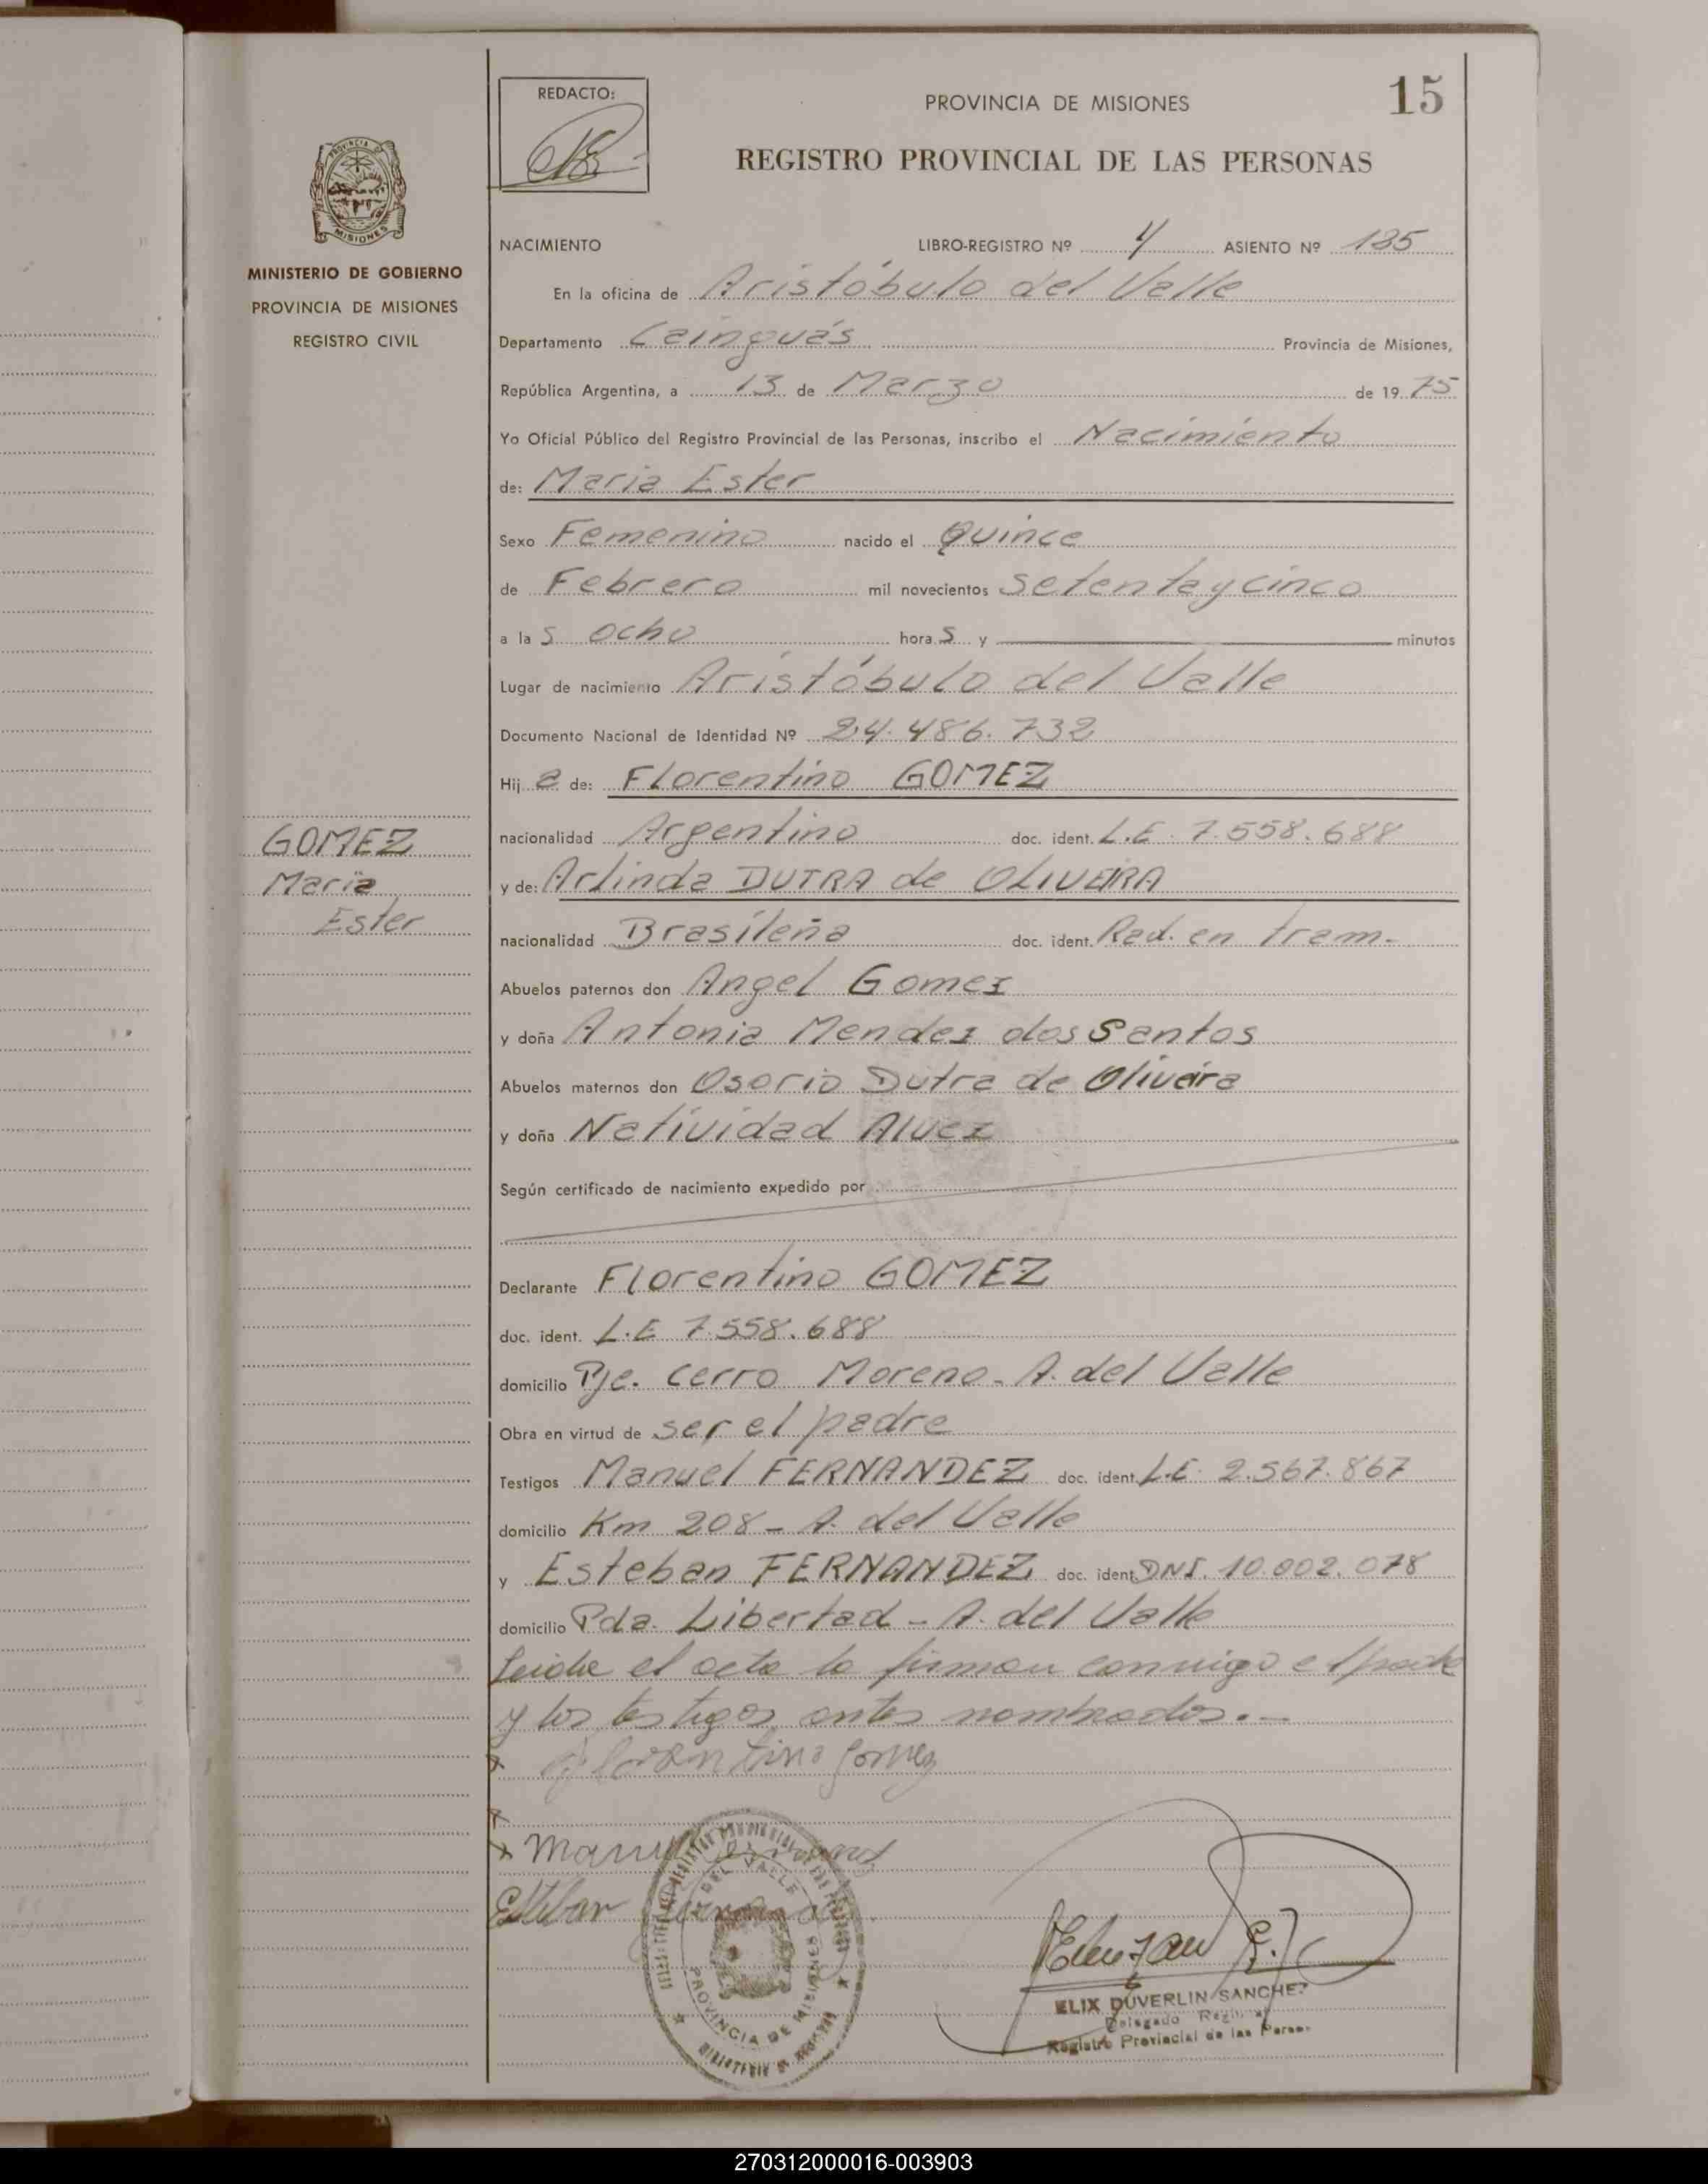 REDACTO:
PROVINCIA DE MISIONES
15
REGISTRO PROVINCIAL DE LAS PERSONAS
PROVINCIA DE
MISIONES
MINISTERIO DE GOBIERNO
PROVINCIA DE MISIONES
REGISTRO CIVIL
NACIMIENTO LIBRO-REGISTRO Nº 4 ASIENTO Nº 185
En la oficina de Aristóbulo del Valle
Departamento Cainguás Provincia de Misiones,
República Argentina, a 13 de Marzo de 1975
Yo Oficial Público del Registro Provincial de las Personas, inscribo el Nacimiento
de: Maria Ester
Sexo Femenino nacido el quince
de Febrero mil novecientos setenta y cinco
a las ocho horas y minutos
Lugar de nacimiento Aristóbulo del Valle
Documento Nacional de Identidad Nº 24.486.732
Hija de: Florentino GOMEZ
nacionalidad Argentino doc. ident. L.E. 7.558.688
y de: Arlinda DUTRA de OLIVEIRA
nacionalidad Brasileña doc. ident. Rad. en tram.
GOMEZ
Maria
Ester
Abuelos paternos don Angel Gomez
y doña Antonia Mendez dos Santos
Abuelos maternos don Osorio Dutra de Oliveira
y doña Natividad Alvez
Según certificado de nacimiento expedido por
Declarante Florentino GOMEZ
doc. ident. L.E 7.558.688
domicilio Pje. Cerro Moreno - A. del Valle
Obra en virtud de ser el padre
Testigos Manuel FERNANDEZ doc. ident. L.E. 2.567.867
domicilio Km 208 - A. del Valle
y Esteban FERNANDEZ doc. ident DNI. 10.002.078
domicilio Pda. Libertad - A. del Valle
Leida el acta la firman conmigo el padre
y los testigos antes nombrados.-
Florentino Gomez
Manuel
Esteban
DEL VALLE
PROVINCIA DE MISIONES
ELIX DUVERLIN SANCHEZ
Delegado
Registro Provincial de las Perso
270312000016-003903